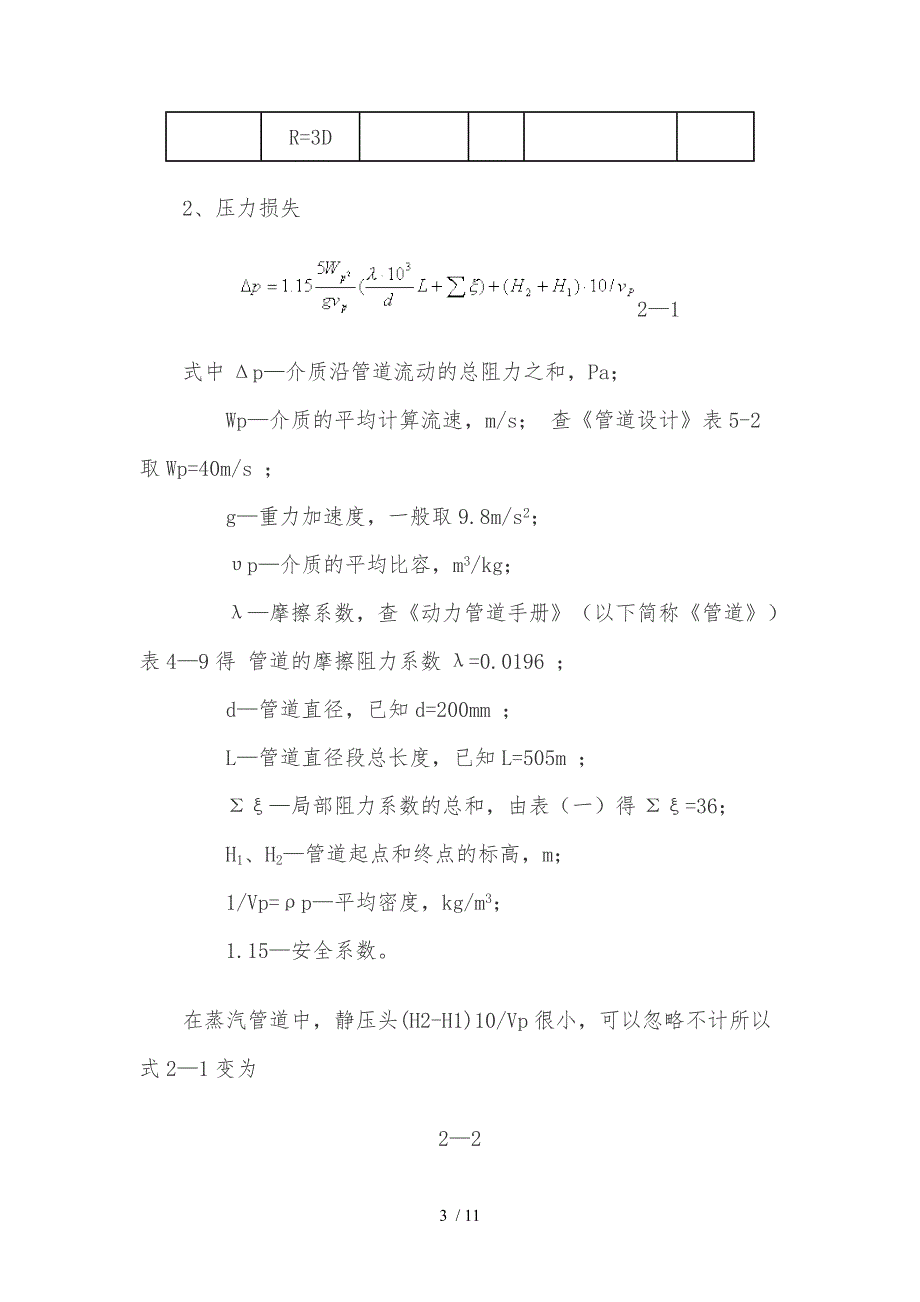 R=3D
2、压力损失
Δp=1.15 5Wp²/gvp (λ·10³/d L+∑ξ)+(H₂+H₁)·10/vP
2—1
式中 Δp—介质沿管道流动的总阻力之和，Pa；
Wp—介质的平均计算流速，m/s； 查《管道设计》表5-2
取Wp=40m/s ；
g—重力加速度，一般取9.8m/s²；
υp—介质的平均比容，m³/kg；
λ—摩擦系数，查《动力管道手册》（以下简称《管道》）
表4—9得 管道的摩擦阻力系数 λ=0.0196 ；
d—管道直径，已知d=200mm ；
L—管道直径段总长度，已知L=505m ；
Σξ—局部阻力系数的总和，由表（一）得Σξ=36；
H₁、H₂—管道起点和终点的标高，m；
1/Vp=ρp—平均密度，kg/m³；
1.15—安全系数。
在蒸汽管道中，静压头(H2-H1)10/Vp很小，可以忽略不计所以
式2—1变为
2—2
3 / 11